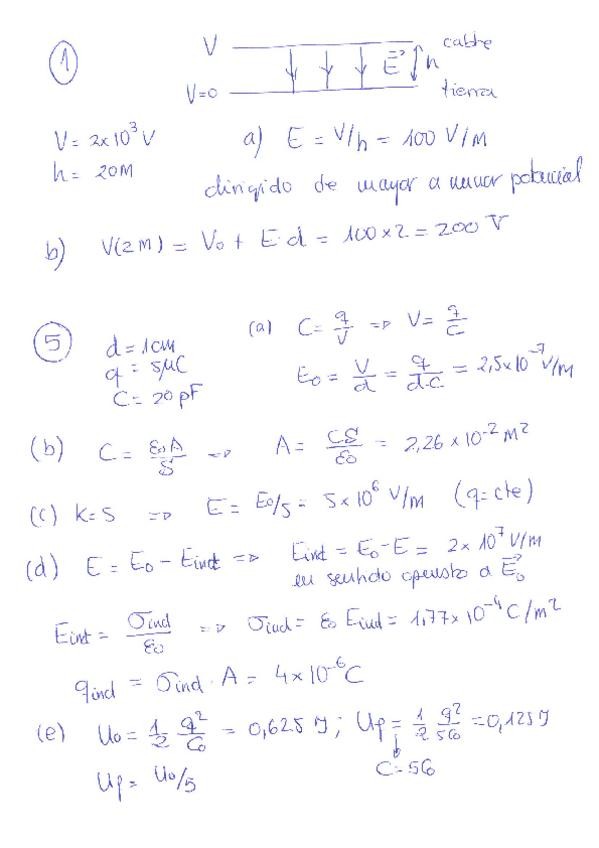 1
V cable
E⃗ h
V=0 tierra
V = 2x10³ V a) E = V/h = 100 V/M
h = 20M dirigido de mayor a menor potencial
b) V(2M) = V₀ + E·d = 100 x 2 = 200 V
5
d = 1cm (a) C = q/V => V = q/C
q = 5μC
C = 20 pF E₀ = V/d = q/d·C = 2,5x10⁻⁷ V/M
(b) C = ε₀A/S => A = CS/ε₀ = 2,26 x 10⁻² M²
(c) K=5 => E = E₀/5 = 5x10⁶ V/M (q=cte)
(d) E = E₀ - Eind => Eind = E₀-E = 2x10⁷ V/M
en sentido opuesto a E⃗₀
Eind = σind/ε₀ => σind = ε₀ Eind = 1,77x10⁻⁴ C/m²
qind = σind · A = 4x10⁻⁶ C
(e) U₀ = 1/2 q²/C₀ = 0,625 J ; Up = 1/2 q²/5C₀ = 0,125 J
Up = U₀/5 C=5C₀